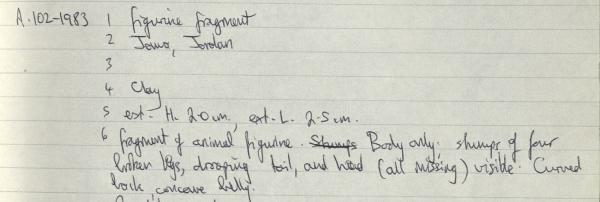 A.102-1983 1 figurine fragment
2 Jawa, Jordan
3
4 Clay
5 ext. H. 2.0 cm, ext. L. 2.5 cm.
6 fragment of animal figurine. Stumps Body only; stumps of four
broken legs, drooping tail, and head (all missing) visible. Curved
back concave belly.